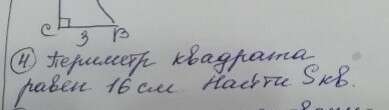 С 3 В
④ Периметр квадрата
равен 16 см. Найти Sкв.